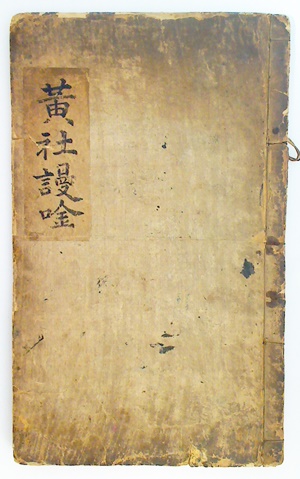 黃社謾唫